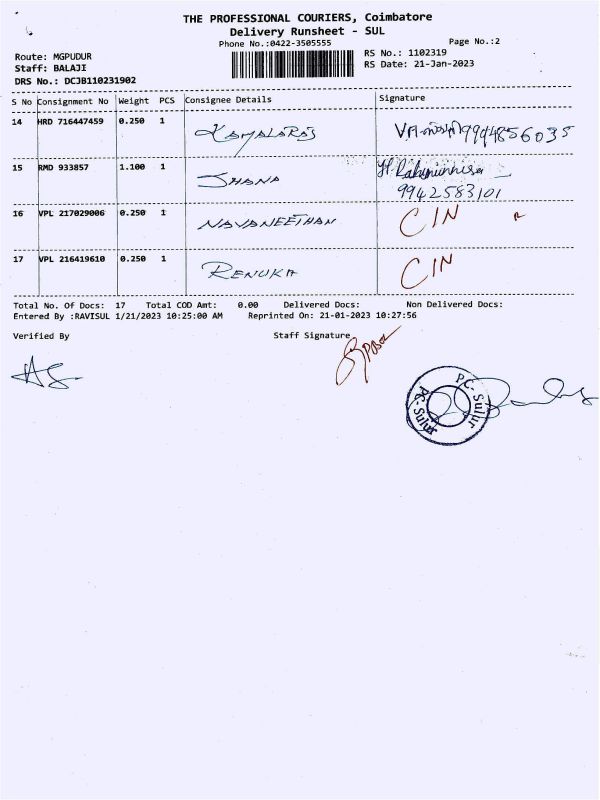 THE PROFESSIONAL COURIERS, Coimbatore
Delivery Runsheet - SUL
Phone No.:0422-3505555
Page No.:2
Route: MGPUDUR
RS No.: 1102319
Staff: BALAJI
RS Date: 21-Jan-2023
DRS No.: DCJB110231902
S No Consignment No Weight PCS Consignee Details Signature
14 HRD 716447459 0.250 1 KAMALARAJ 9994856035
15 RMD 933857 1.100 1 SHANA
9942583101
16 VPL 217029006 0.250 1 NAVANEETHAN CIN
17 VPL 216419610 0.250 1 RENUKA CIN
Total No. Of Docs: 17 Total COD Amt: 0.00 Delivered Docs: Non Delivered Docs:
Entered By :RAVISUL 1/21/2023 10:25:00 AM Reprinted On: 21-01-2023 10:27:56
Verified By Staff Signature
PC-Sulur
PC-Sulur